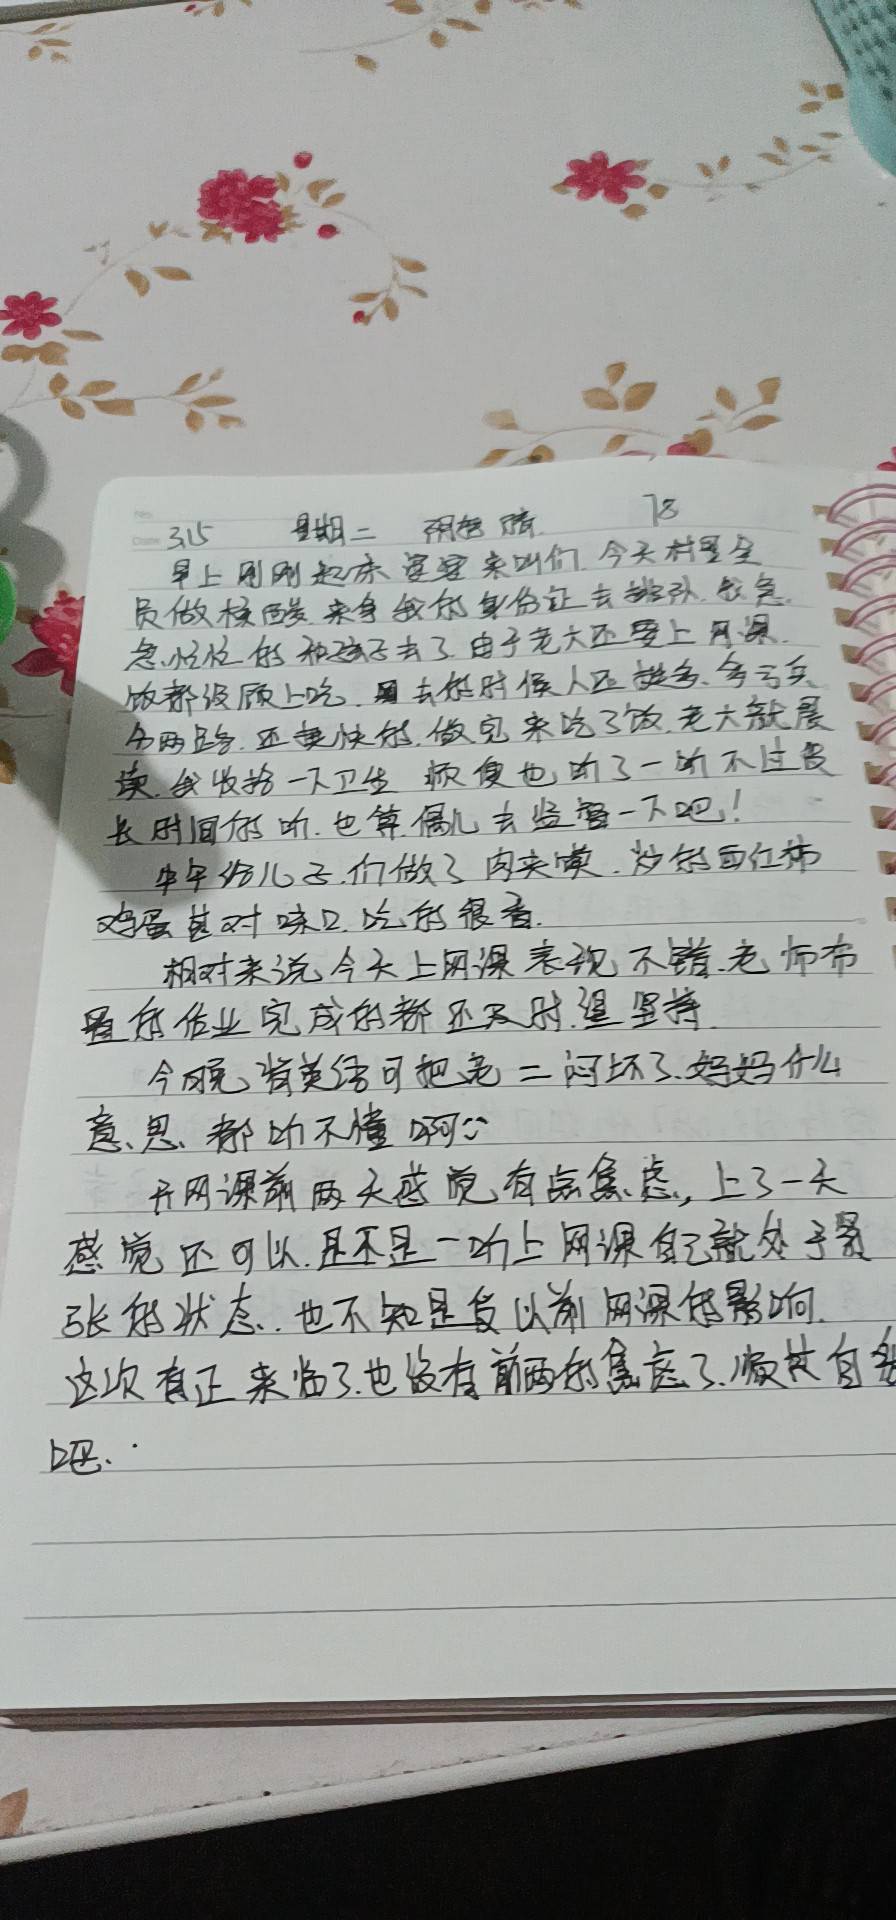 3.15 星期二 阴转晴 78
早上刚刚起床 婆婆来叫们.今天村里全
员做核酸.来拿我的身份证去排队.我急
急忙忙的和孩子去了.由于老大还要上网课.
饭都没顾上吃.去的时候人还挺多.多亏兵
分两路.还挺快的.做完来吃了饭.老大就晨
读.我收拾一下卫生 顺便也听了一听不过没
长时间的听.也算偶儿去监督一下吧!
中午给儿子.们做了肉夹馍.炒的西红柿
鸡蛋甚对味口.吃的很香.
相对来说今天上网课表现不错.老师布
置的作业完成的都还及时.望坚持.
今晚背英语可把老二闷坏了.妈妈什么
意.思.都听不懂啊
开网课前两天感觉有点焦虑,上了一天
感觉还可以.是不是一听上网课自己就处于紧
张的状态..也不知是受以前网课的影响.
这次真正来临了.也没有前两的焦虑了.顺其自然
吧..